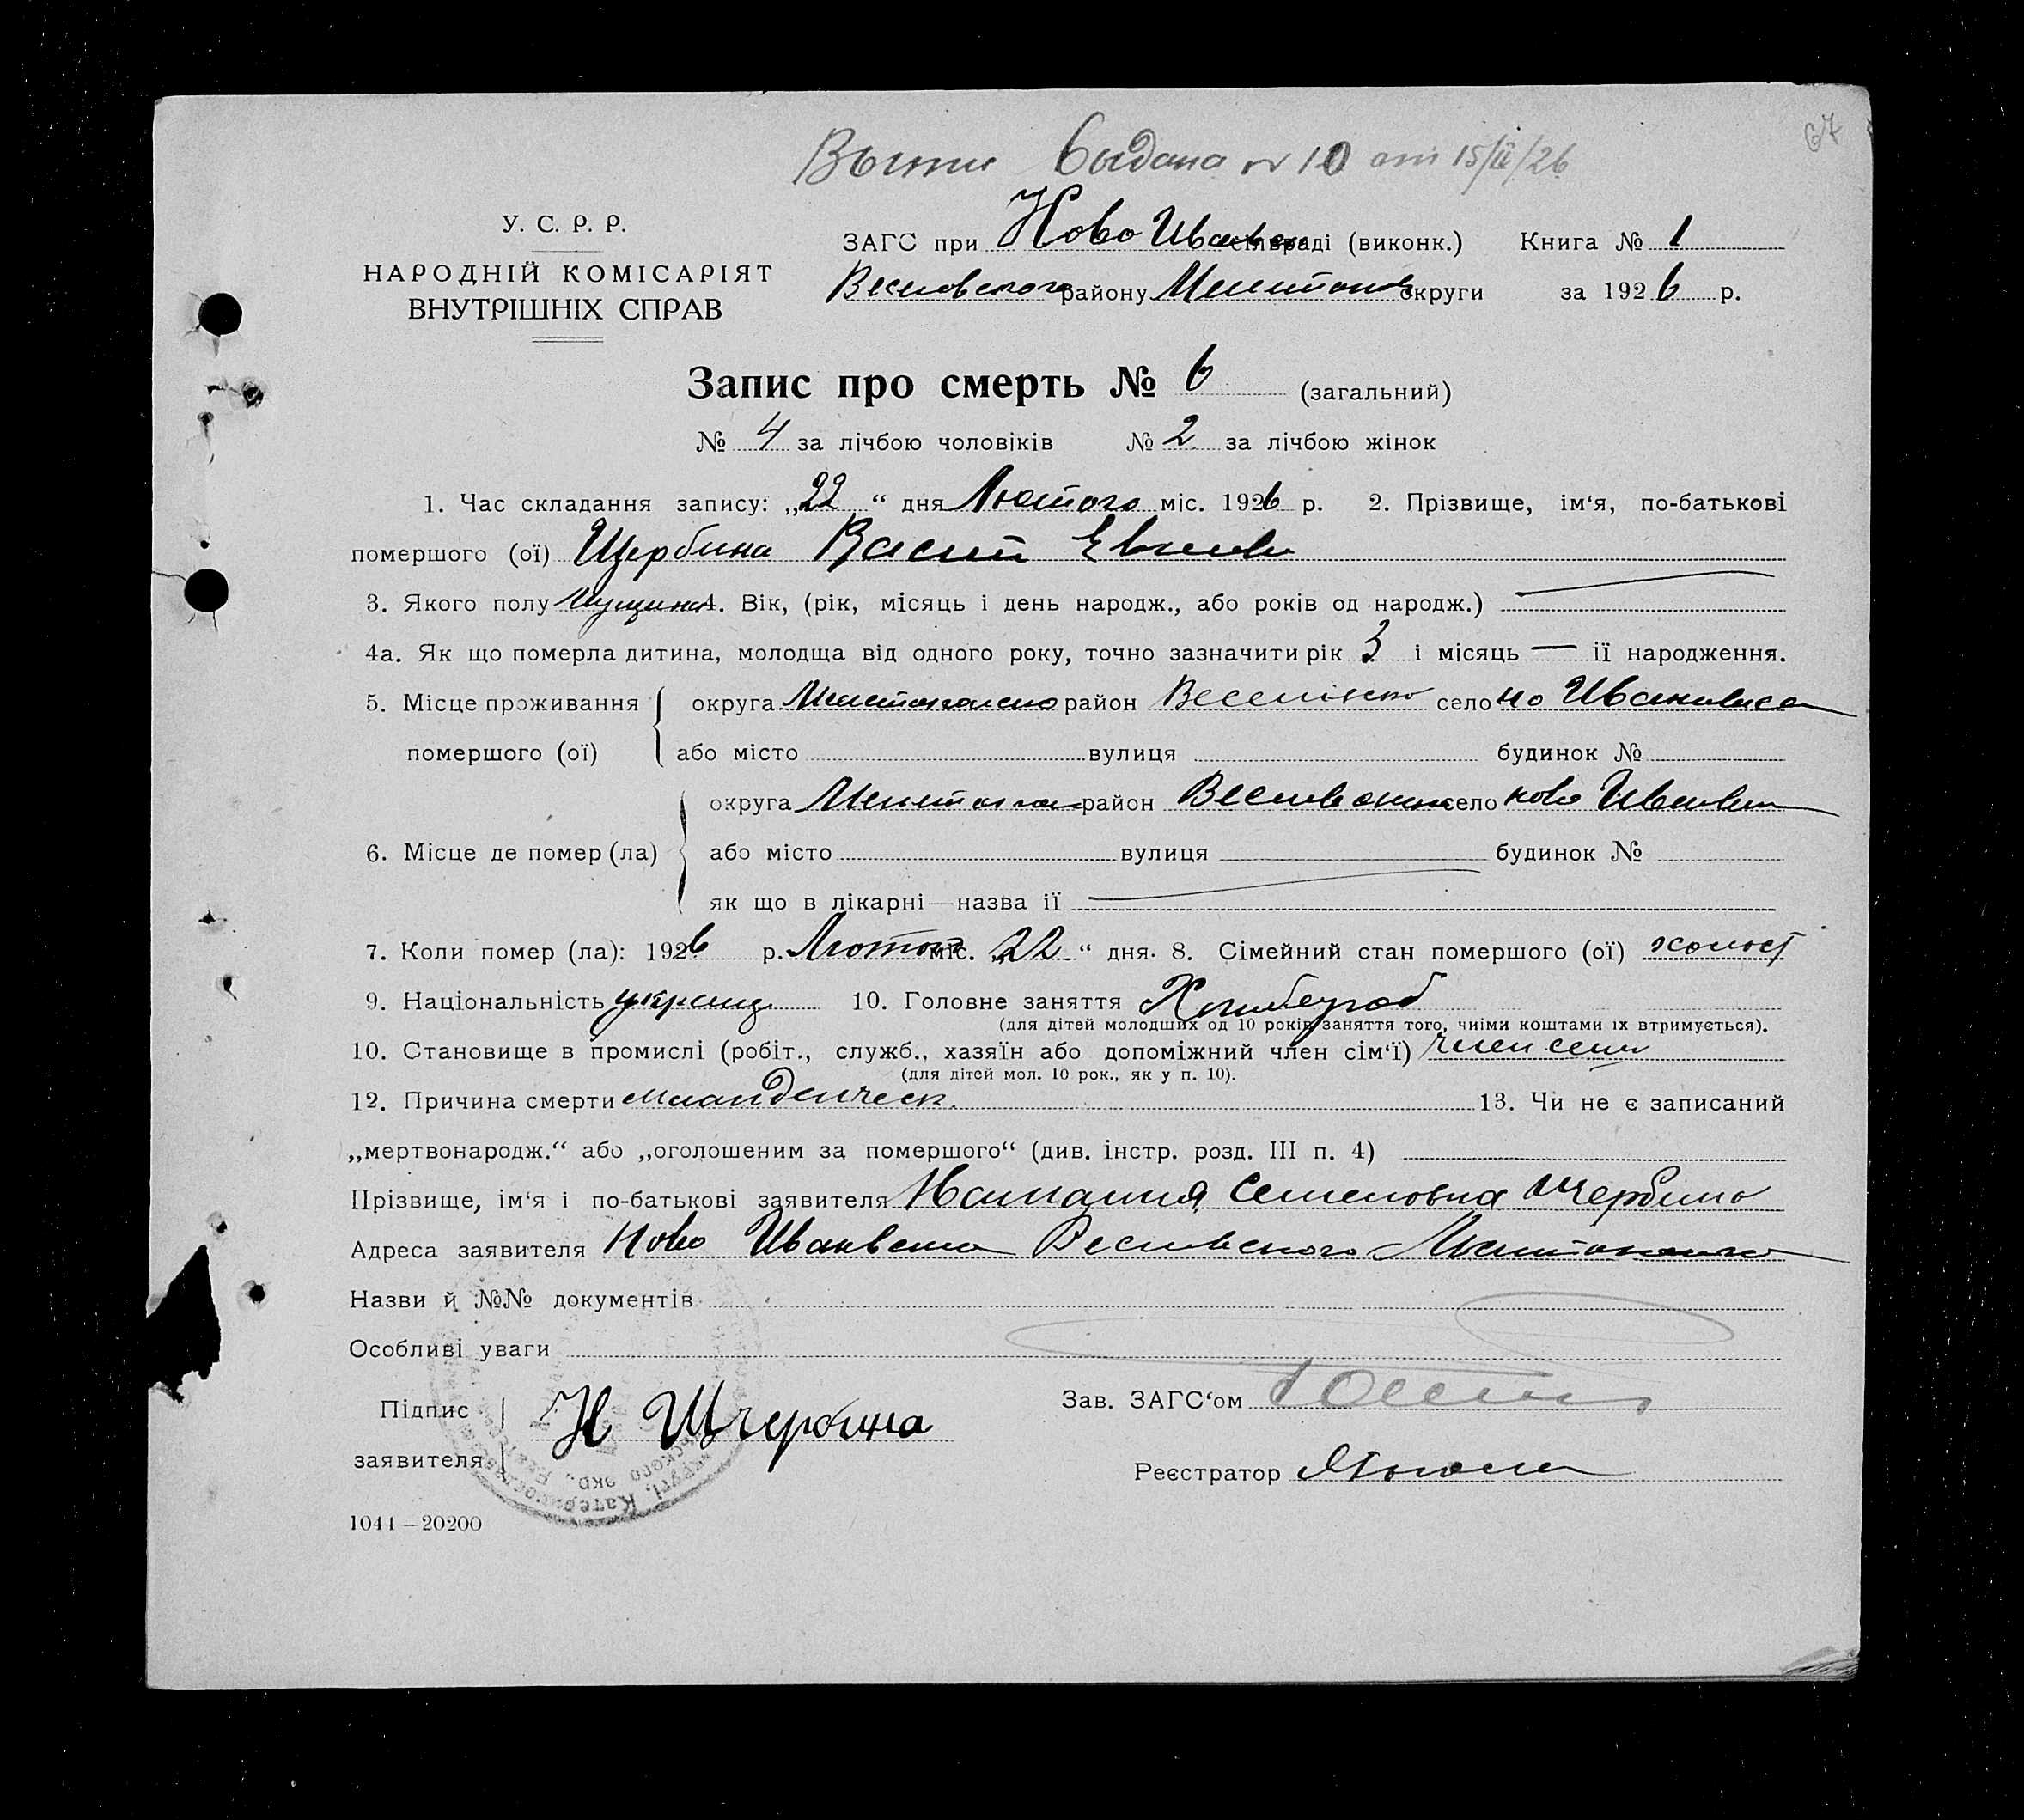 67
выдана № 10 от 15/II/26
У. С. Р. Р.
НАРОДНІЙ КОМІСАРІЯТ
ВНУТРІШНІХ СПРАВ
ЗАГС при Ново Иванов сільраді (виконк.) Книга № 1
Веселовского району Мелитопол округи за 1926 р.
Запис про смерть № 6 (загальний)
№ 4 за лічбою чоловіків № 2 за лічбою жінок
1. Час складання запису: „22“ дня Лютого міс. 1926 р. 2. Прізвище, ім‘я, по-батькові
помершого (ої) Щербина Васил
3. Якого полу Мущина 4. Вік, (рік, місяць і день народж., або років од народж.)
4а. Як що померла дитина, молодща від одного року, точно зазначити рік 3 і місяць — ії народження.
5. Місце проживання округа район село Но Ивановка
помершого (ої) або місто вулиця будинок №
округа район село Ново
6. Місце де помер (ла) або місто вулиця будинок №
як що в лікарні—назва ії
7. Коли помер (ла): 1926 р. Лютого міс. „22“ дня. 8. Сімейний стан помершого (ої) холост
9. Національність украинц 10. Головне заняття Хлибороб
(для дітей молодших од 10 років заняття того, чиіми коштами іх втримується).
10. Становище в промислі (робіт., служб., хазяїн або допоміжний член сім‘ї) член семи
(для дітей мол. 10 рок., як у п. 10).
12. Причина смерти младенческ. 13. Чи не є записаний
„мертвонародж.“ або „оголошеним за помершого“ (див. інстр. розд. III п. 4)
Прізвище, ім‘я і по-батькові заявителя Наталия Семеновна Щербина
Адреса заявителя Ново Ивановка Веселовского
Назви й №№ документів
Особливі уваги
Підпис заявителя Н Щербина
Зав. ЗАГС‘ом
Реєстратор
1044—20200